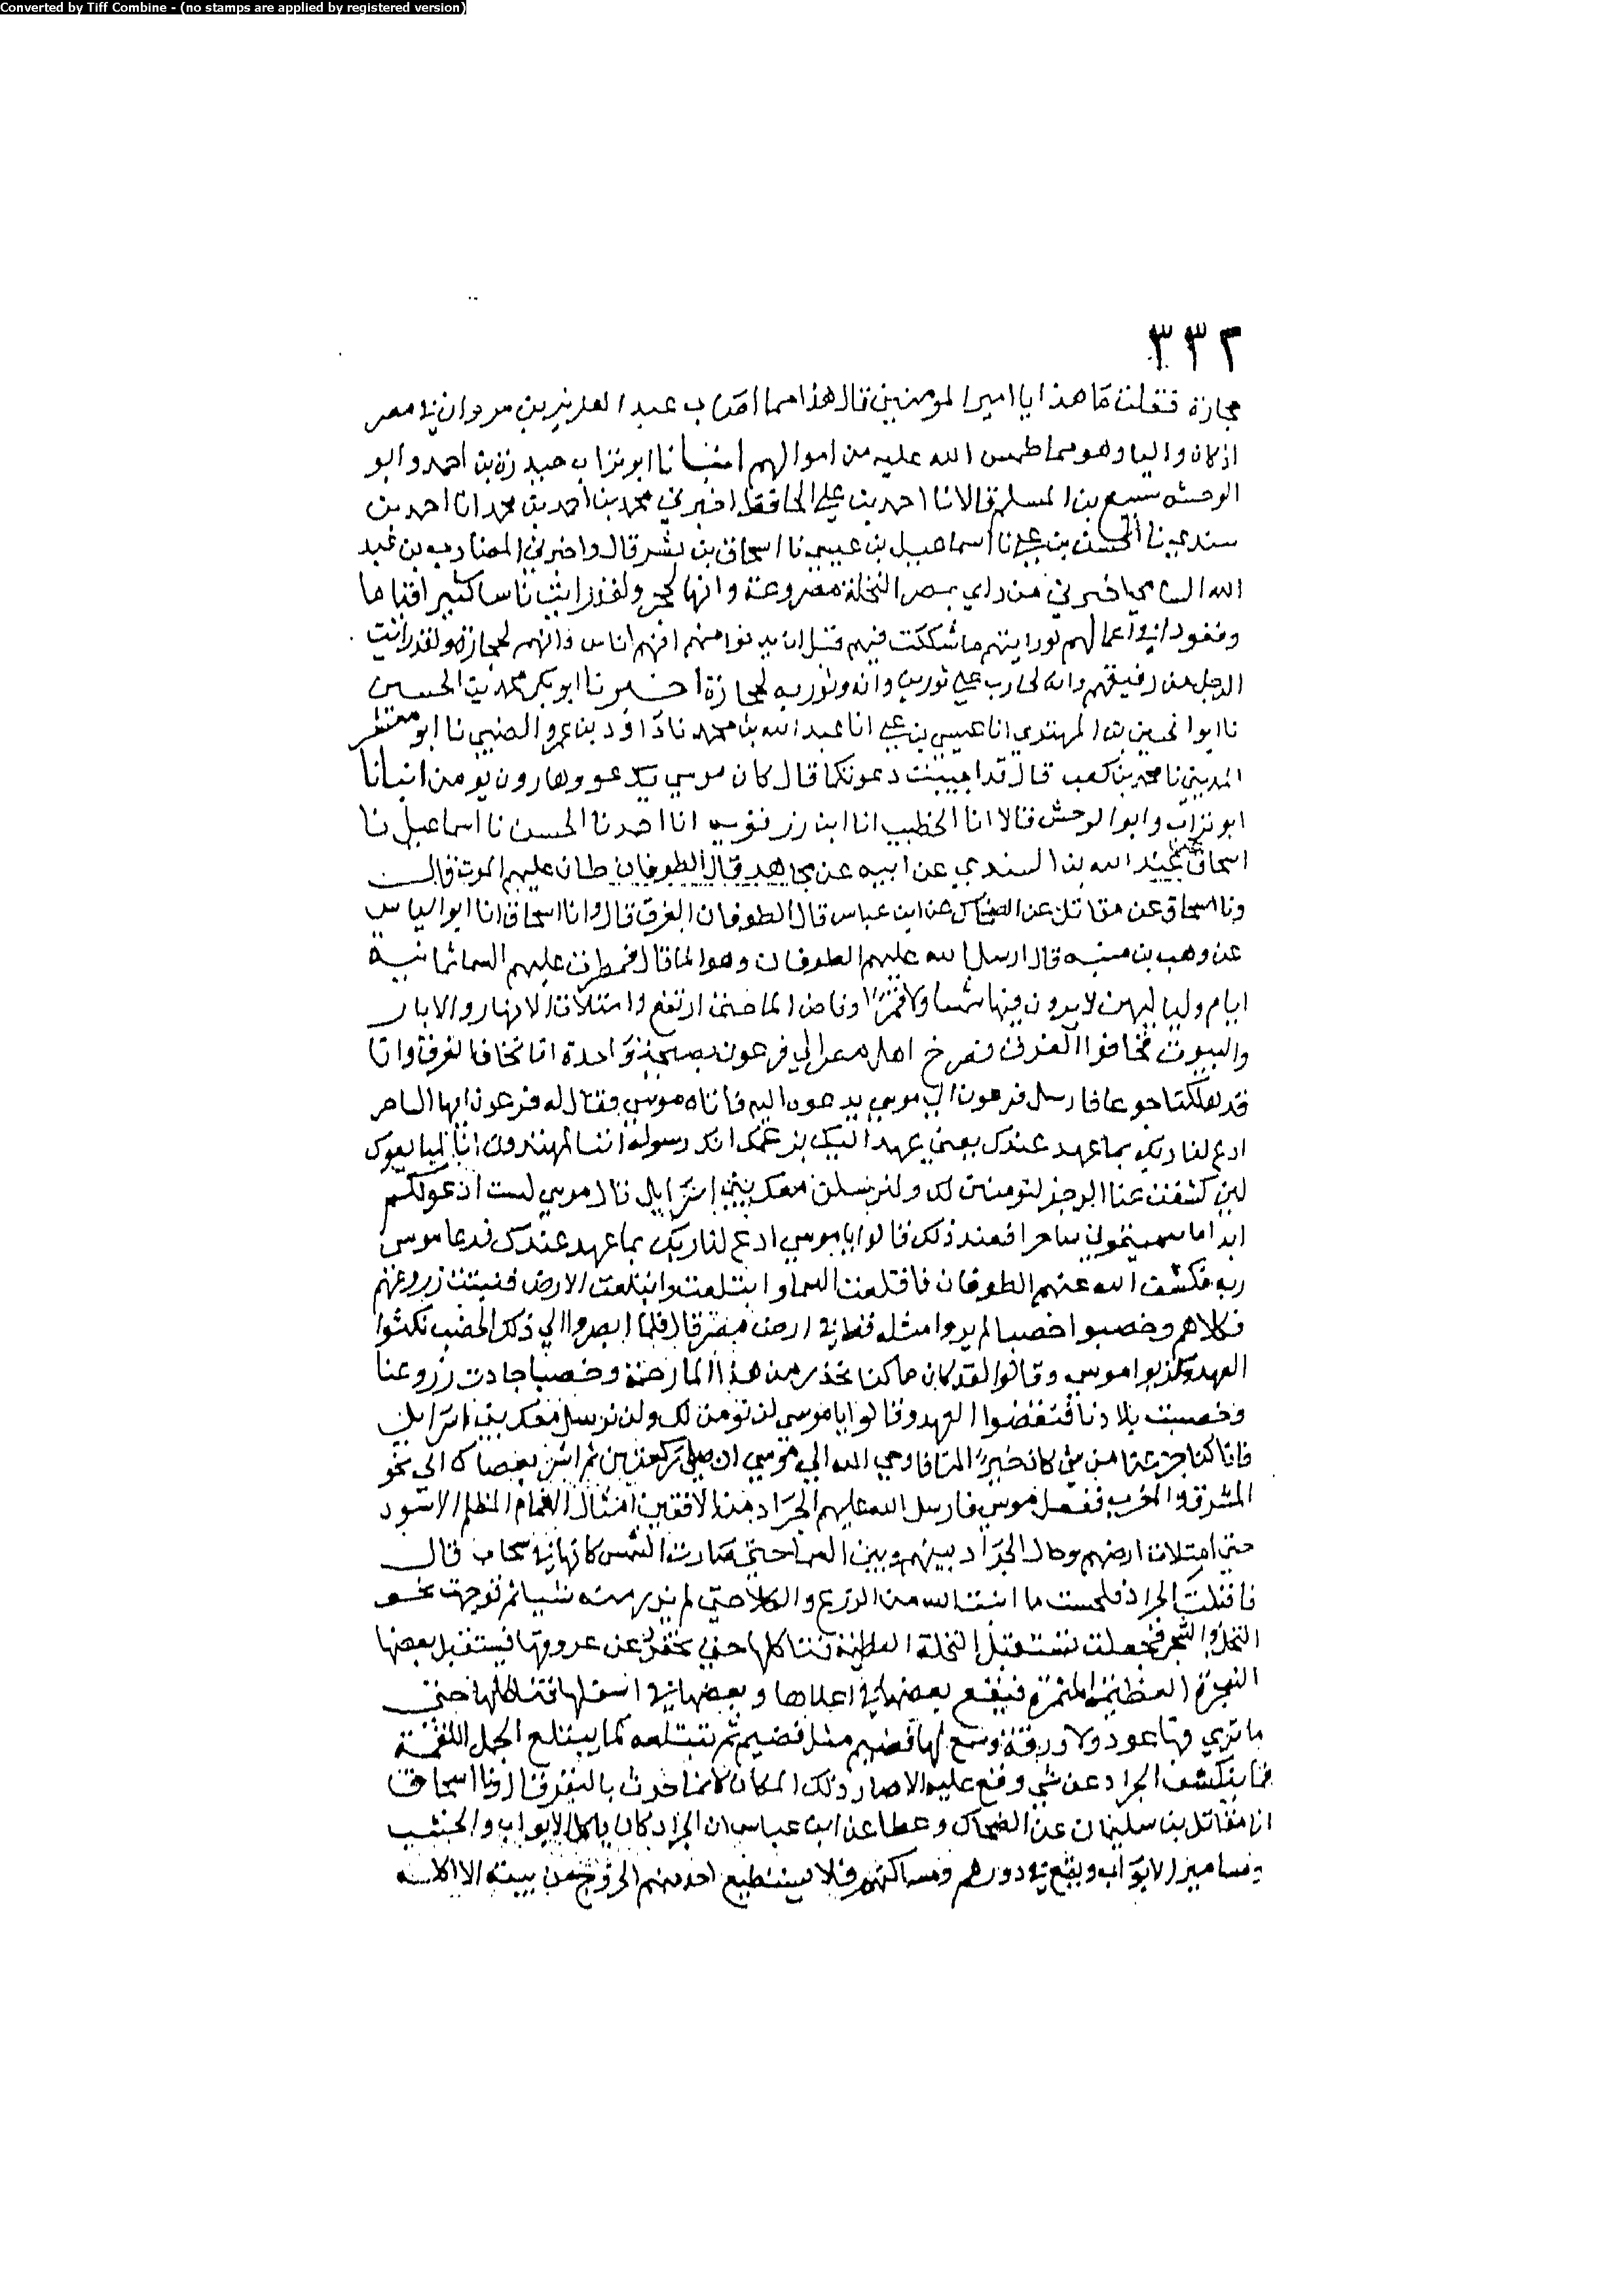 Converted by Tiff Combine - (no stamps are applied by registered version)
٣٣٢
حجارة فقلت ما هذا يا امير المومنين قال هذا مما اصاب عبد العزيز بن مروان في مصر
اذ كان واليا وهو مما طمس الله عليه من اموالهم انبانا ابو تراب حيدرة بن احمد وابو
الوحش سبيع بن المسلم قالا نا احمد بن علي الحافظ اخبرني محمد بن احمد بن محمد انا احمد بن
سندي نا الحسن بن علي نا اسماعيل بن عيسى نا اسحاق بن بشر قال واخبرني المضارب بن عبد
الله الشامي اخبرني من راي بمصر النخلة مصروعة وانها لحجر ولقد رايت ناسا كثير اقياما
وقعودا في اعمالهم لو رايتهم ما شككت فيهم قبل ان تدنوا منهم انهم اناس وانهم لحجارة ولقد رايت
الرجل من رقيقهم وانه لحارث علي ثورين وانه وثوريه لحجارة اخبرنا ابو بكر محمد بن الحسين
نا ابو الحسين بن المهتدي انا عيسى بن علي انا عبد الله بن محمد نا داود بن عمرو الضبي نا ابو معشر
المديني نا محمد بن كعب قال قد اجيبت دعوتكما قال كان موسي يدعو وهارون يومن انبانا
ابو تراب وابو الوحش قالا انا الخطيب انا ابن رزقويه انا احمد نا الحسن نا اسماعيل نا
اسحاق عبيد الله بن السندي عن ابيه عن مجاهد قال الطوفان طاف عليهم الموت قال
ونا اسحاق عن مقاتل عن الضحاك عن ابن عباس قال الطوفان الغرق قال وانا اسحاق انا ابو الياس
عن وهب بن منبه قال ارسل الله عليهم الطوفان وهو الما قال فمطرت عليهم السما ثمانية
ايام ولياليهن لا يرون فيها شمسا ولا قمرا وفاض الما حتى ارتفع وامتلات الانهار والابار
والبيوت فخافوا الغرق فصرخ اهل مصر الي فرعون بصيحة واحدة انا نخاف الغرق وانا
قد هلكنا جوعا فارسل فرعون الي موسي يدعوه اليه فاتاه موسي فقال له فرعون ايها الساحر
ادع لنا ربك بما عهد عندك يعني عهد اليك بزعمك انك رسوله اننا لمهتدون
لين كشفت عنا الرجز لنومنن لك ولنرسلن معك بني اسرايل قال موسي لست ادعو لكم
ابدا ما سميتموني ساحرا فعند ذلك قالوا يا موسي ادع لنا ربك بما عهد عندك فدعا موسى
ربه فكشف الله عنهم الطوفان فاقلعت السما وابتلعت الارض فنبتت زروعهم
وكلاهم وخصبوا خصبا لم يروا مثله قط في ارض مصر قال فلما ابصروا الي ذلك الخصب نكثوا
العهد وكذبوا موسى وقالوا لقد كان ما كنا نحذر من هذا الما رحمة وخصبا جادت زروعنا
وخصبت بلادنا فنقضوا العهد وقالوا يا موسي لن نومن لك ولن نرسل معك بني اسرايل
فانا كنا جزعنا من شي كان خيرا لنا فاوحي الله الي موسي ان صلي ركعتين ثم اشر بعصاك الى نحو
المشرق والمغرب ففعل موسي فارسل الله عليهم الجراد من الافقين امثال الغمام المظلم الاسود
حتى امتلات ارضهم وحال الجراد بينهم وبين السما حتى صارت الشمس كانها في سحاب قال
فاقبلت الجراد فلحست ما انبت الله من الزرع والكلا حتى لم يذر منه شيا ثم توجهت نحو
النخل والشجر فجعلت تستقبل النخلة العظيمة فتاكلها حتى تحفر عن عروقها فيستقبل بعضها
الشجرة العظيمة المثمرة فيقع بعضها في اعلاها وبعضها في اسفلها فتاكلها حتى
ما تري فيها عود ولا ورقة وسمع لها قضيم مثل قضيم ثم تبتلعه كما يبتلع الجمل اللقمة
فما ينكشف الجراد عن شي وقع عليه الا صار ذلك المكان كانما حرث بالبقر قال ونا اسحاق
انا مقاتل بن سليمان عن الضحاك وعطا عن ابن عباس ان الجراد كان ياكل الابواب والخشب
ومسامير الابواب ويقع في دورهم ومساكنهم فلا يستطيع احد منهم الخروج من بيته الا اكلته